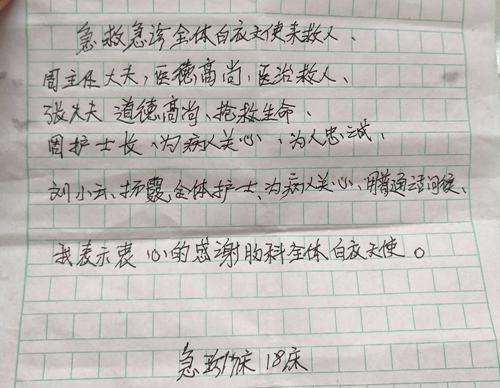 急救急诊全体白衣天使来救人、
周主任大夫,医德高尚,医治救人、
张大夫 道德高尚、抢救生命、
周护士长,为病人关心,为人忠诚,
刘小云、杨霞,全体护士、为病人关心、用普通话问候、
我表示衷心的感谢 全体白衣天使。
急 床 18床